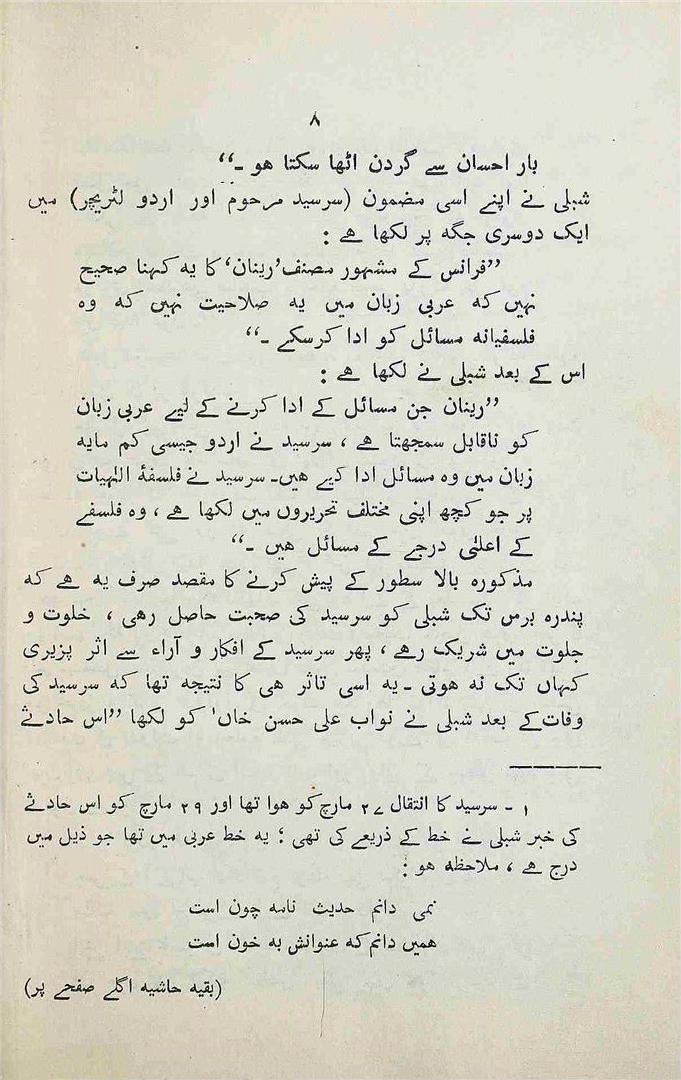 ۸
بار احسان سے گردن اٹھا سکتا ہو ۔‘‘
شبلی نے اپنے اسی مضمون (سرسید مرحوم اور اردو لٹریچر) میں
ایک دوسری جگہ پر لکھا ہے :
’’فرانس کے مشہور مصنف ’رینان‘ کا یہ کہنا صحیح
نہیں کہ عربی زبان میں یہ صلاحیت نہیں کہ وہ
فلسفیانہ مسائل کو ادا کرسکے ۔‘‘
اس کے بعد شبلی نے لکھا ہے :
’’رینان جن مسائل کے ادا کرنے کے لیے عربی زبان
کو ناقابل سمجھتا ہے ، سرسید نے اردو جیسی کم مایہ
زبان میں وہ مسائل ادا کیے ہیں۔ سرسید نے فلسفۂ الٰہیات
پر جو کچھ اپنی مختلف تحریروں میں لکھا ہے ، وہ فلسفے
کے اعلیٰ درجے کے مسائل ہیں ۔‘‘
مذکورہ بالا سطور کے پیش کرنے کا مقصد صرف یہ ہے کہ
پندرہ برس تک شبلی کو سرسید کی صحبت حاصل رہی ، خلوت و
جلوت میں شریک رہے ، پھر سرسید کے افکار و آراء سے اثر پزیری
کہاں تک نہ ہوتی ۔ یہ اسی تاثر ہی کا نتیجہ تھا کہ سرسید کی
وفات کے بعد شبلی نے نواب علی حسن خاں۱ کو لکھا ’’اس حادثے
۱ ۔ سرسید کا انتقال ۲۷ مارچ کو ہوا تھا اور ۲۹ مارچ کو اس حادثے
کی خبر شبلی نے خط کے ذریعے کی تھی ؛ یہ خط عربی میں تھا جو ذیل میں
درج ہے ، ملاحظہ ہو :
نمی دانم حدیث نامہ چون است
ہمیں دانم کہ عنوانش بہ خون است
(بقیہ حاشیہ اگلے صفحے پر)